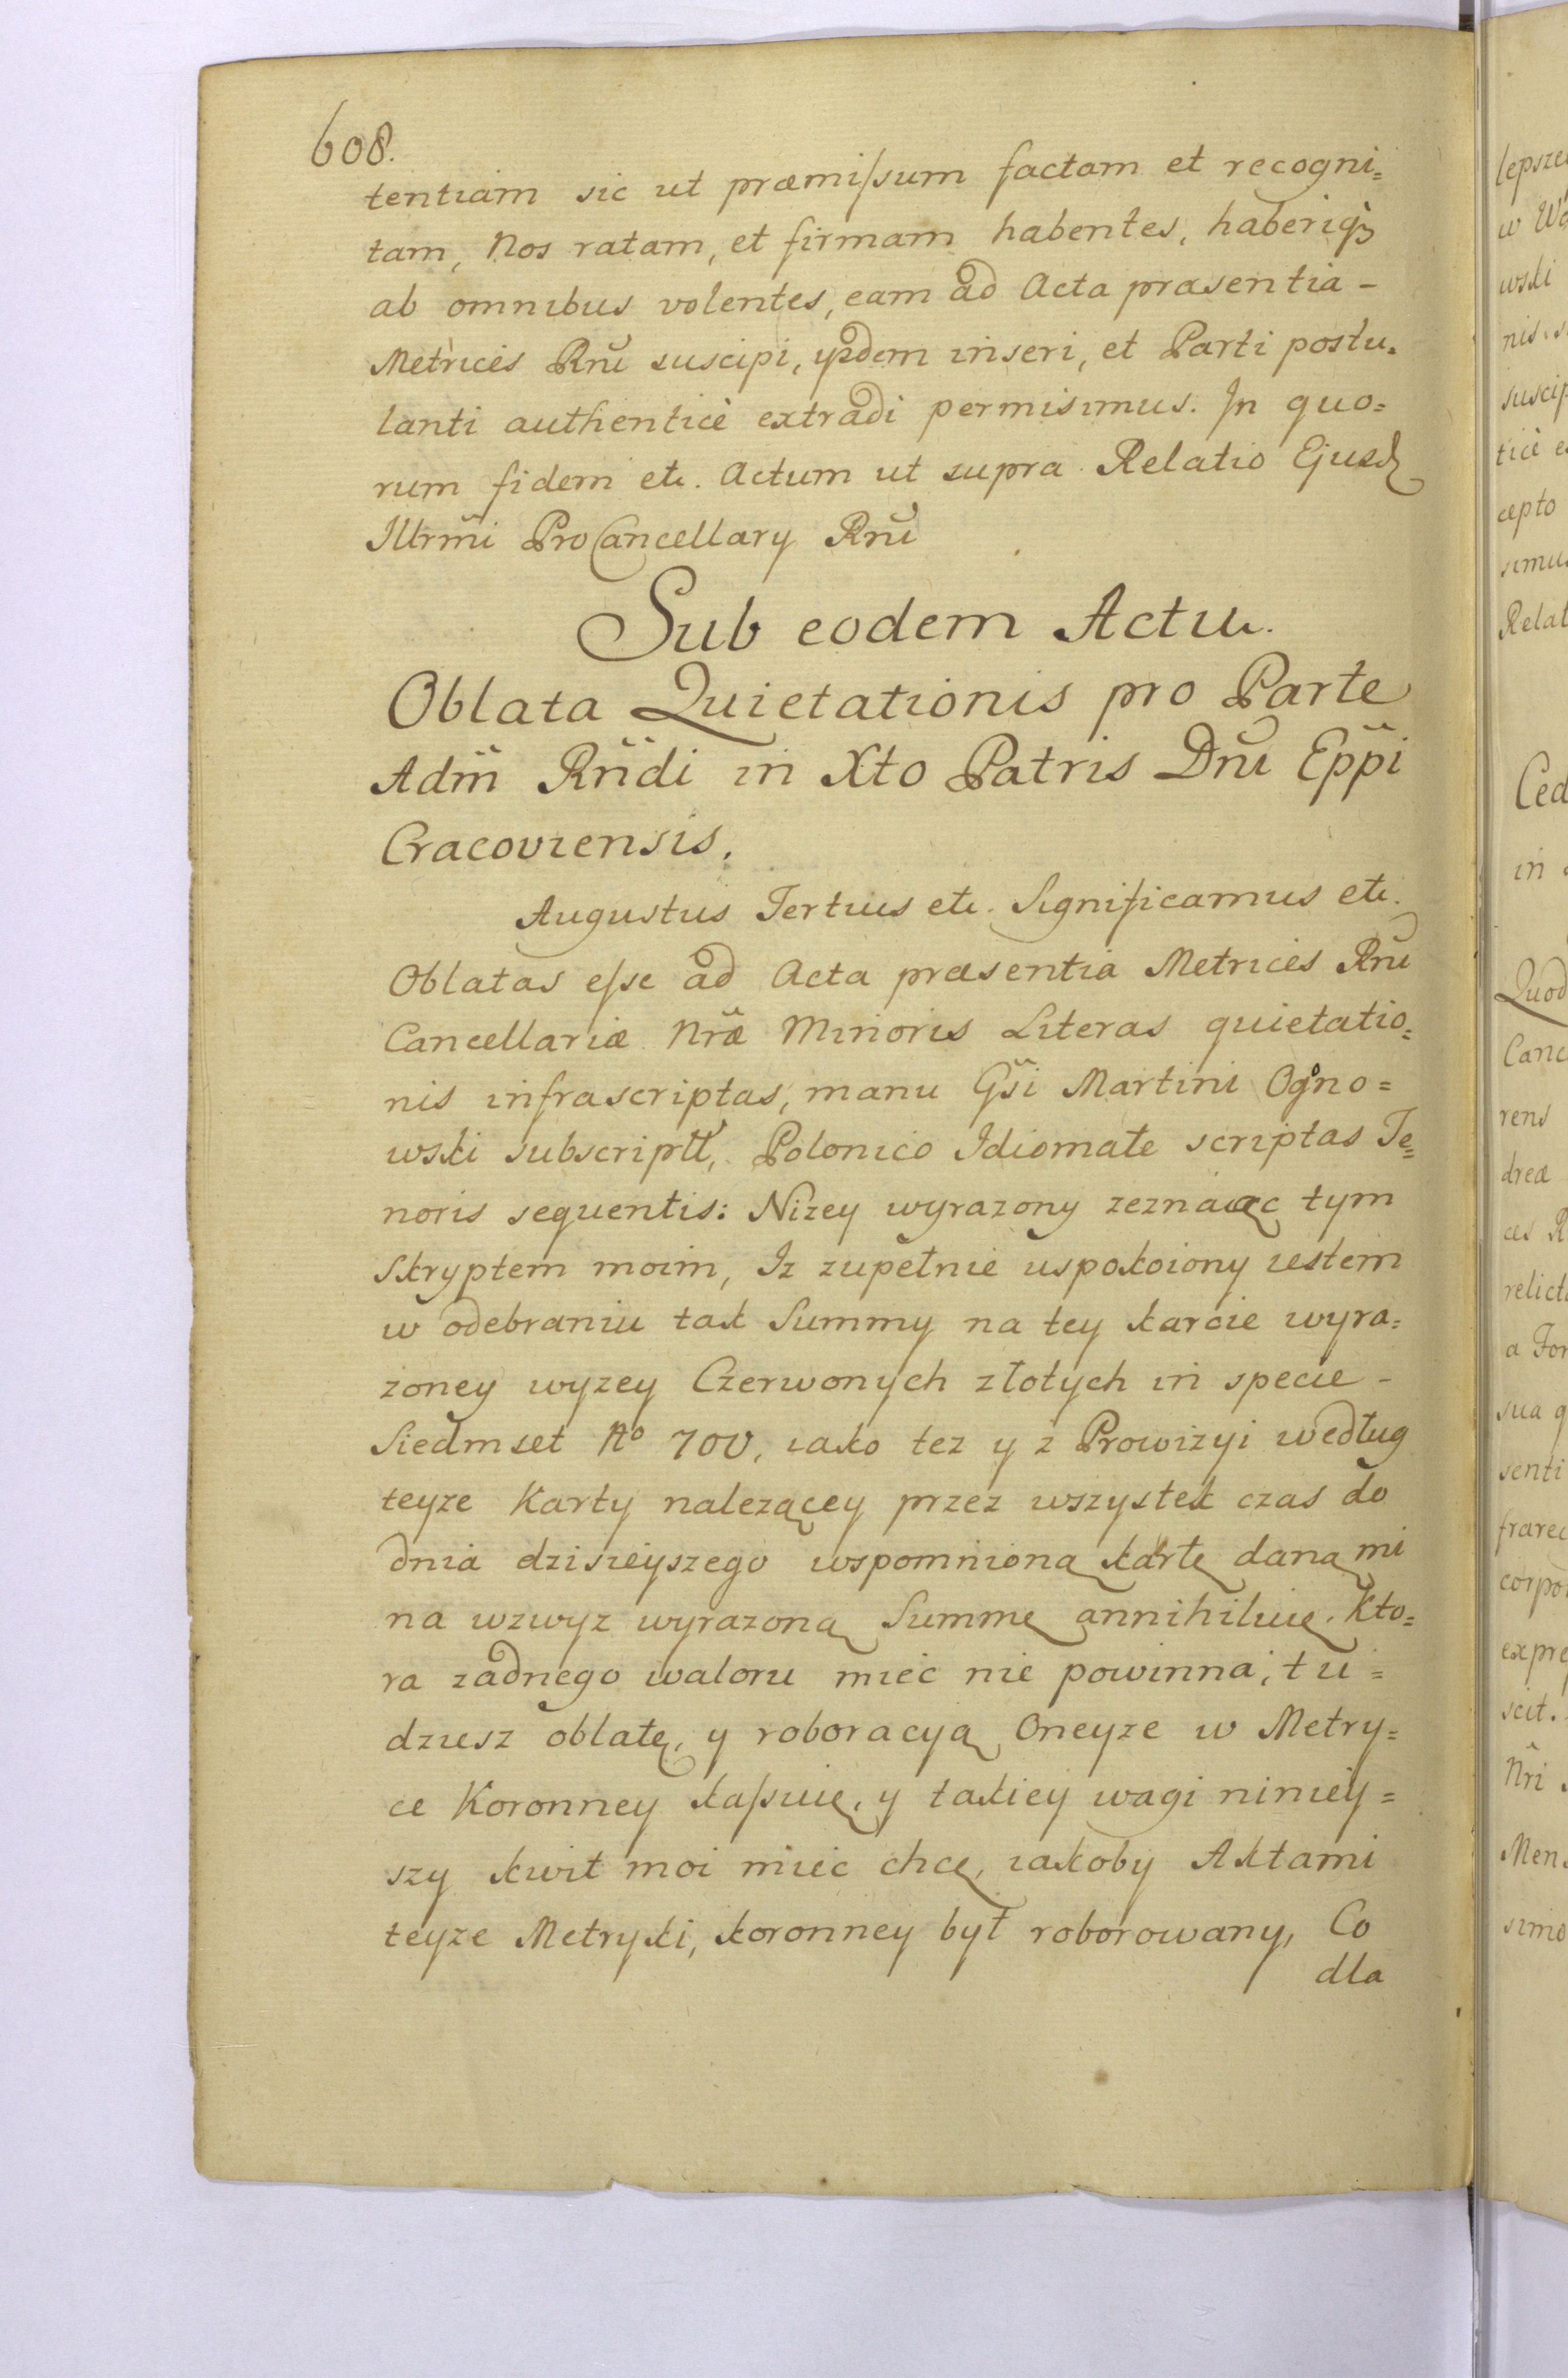 608.
tentiam sic ut præmissum factam et recogni=
tam, Nos ratam, et firmam habentes, haberiq3
ab omnibus volentes, eam ad Acta præsentia -
Metrices Rnĩ suscipi, ijsdem inseri, et Parti postu=
lanti authenticè extradi permisimus. In quo=
rum fidem etc. Actum ut supra Relatio Ejusd
Illrmĩ ProCancellary Rnĩ
Sub eodem Actu.
Oblata Quietationis pro Parte
Adm̃ Rñdi in Xto Patris Dnĩ Epp̃i
Cracoviensis.
Augustus Tertius etc. Significamus etc.
Oblatas esse ad Acta præsentia Metrices Rnĩ
Cancellariæ Nr̃æ Minoris Literas quietatio=
nis infrascriptas, manu Gs̃i Martini Ogno=
wski subscriptt, Polonico Idiomate scriptas Te=
noris sequentis: Nizey wyrazony zeznaiąc tym
Skryptem moim, Iz zupełnie uspokoiony iestem
w odebraniu tak Summy na tey karcie wyra=
zoney wyzey Czerwonych złotych in specie -
Siedmset No 700, iako tez y z Prowizyi według
teyze Karty nalezącey przez wszystek czas do
dnia dzisieyszego wspomnioną kartę daną mi
na wzwyz wyrazoną Summę annihiluię. Kto=
ra zadnego waloru miec nie powinna, tu=
dziesz oblatę, y roboracyą Oneyze w Metry=
ce Koronney kassuię, y takiey wagi niniey=
szy kwit moi miec chcę, iakoby Aktami
teyze Metryki, koronney był roborowany, Co
dla
lepsze
w Wa
wski
suscip
cepto
simus
Relat
Ced
in
Quod
Canc
rens
dreæ
relict
a For
sua q
senti
corpor
expre
scit.
Nr̃i